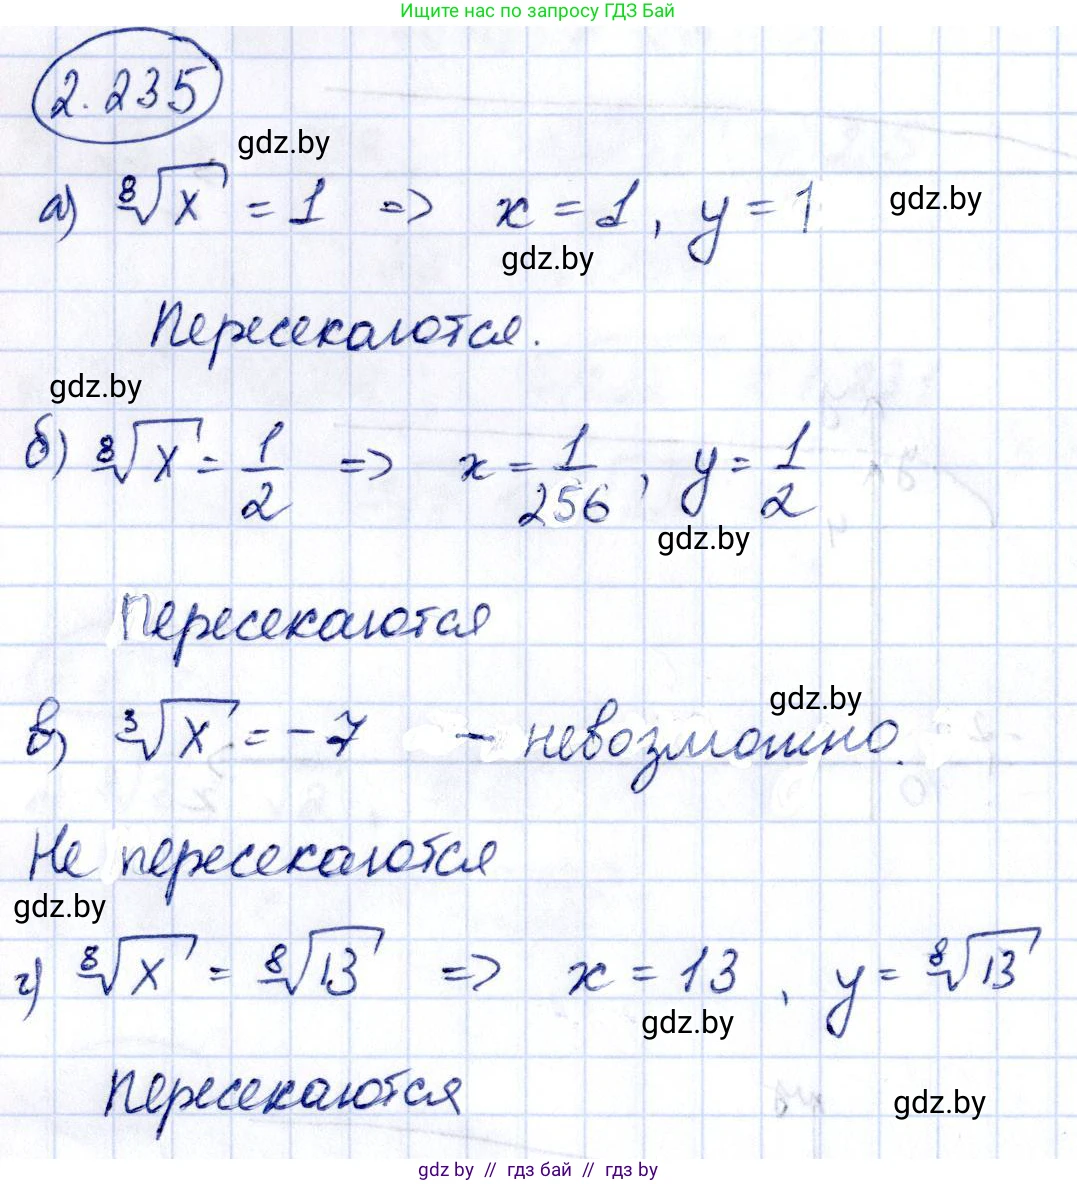 Ищите нас по запросу ГДЗ Бай
2.235
gdz.by
а) ⁸√x = 1 => x = 1, y = 1
gdz.by
gdz.by
Пересекаются.
gdz.by
б) ⁸√x = 1/2 => x = 1/256, y = 1/2
gdz.by
Пересекаются
gdz.by
в) ³√x = -7 - невозможно.
Не пересекаются
gdz.by
г) ⁸√x = ⁸√13 => x = 13, y = ⁸√13
gdz.by
Пересекаются
gdz.by
gdz by // гдз бай // гдз by